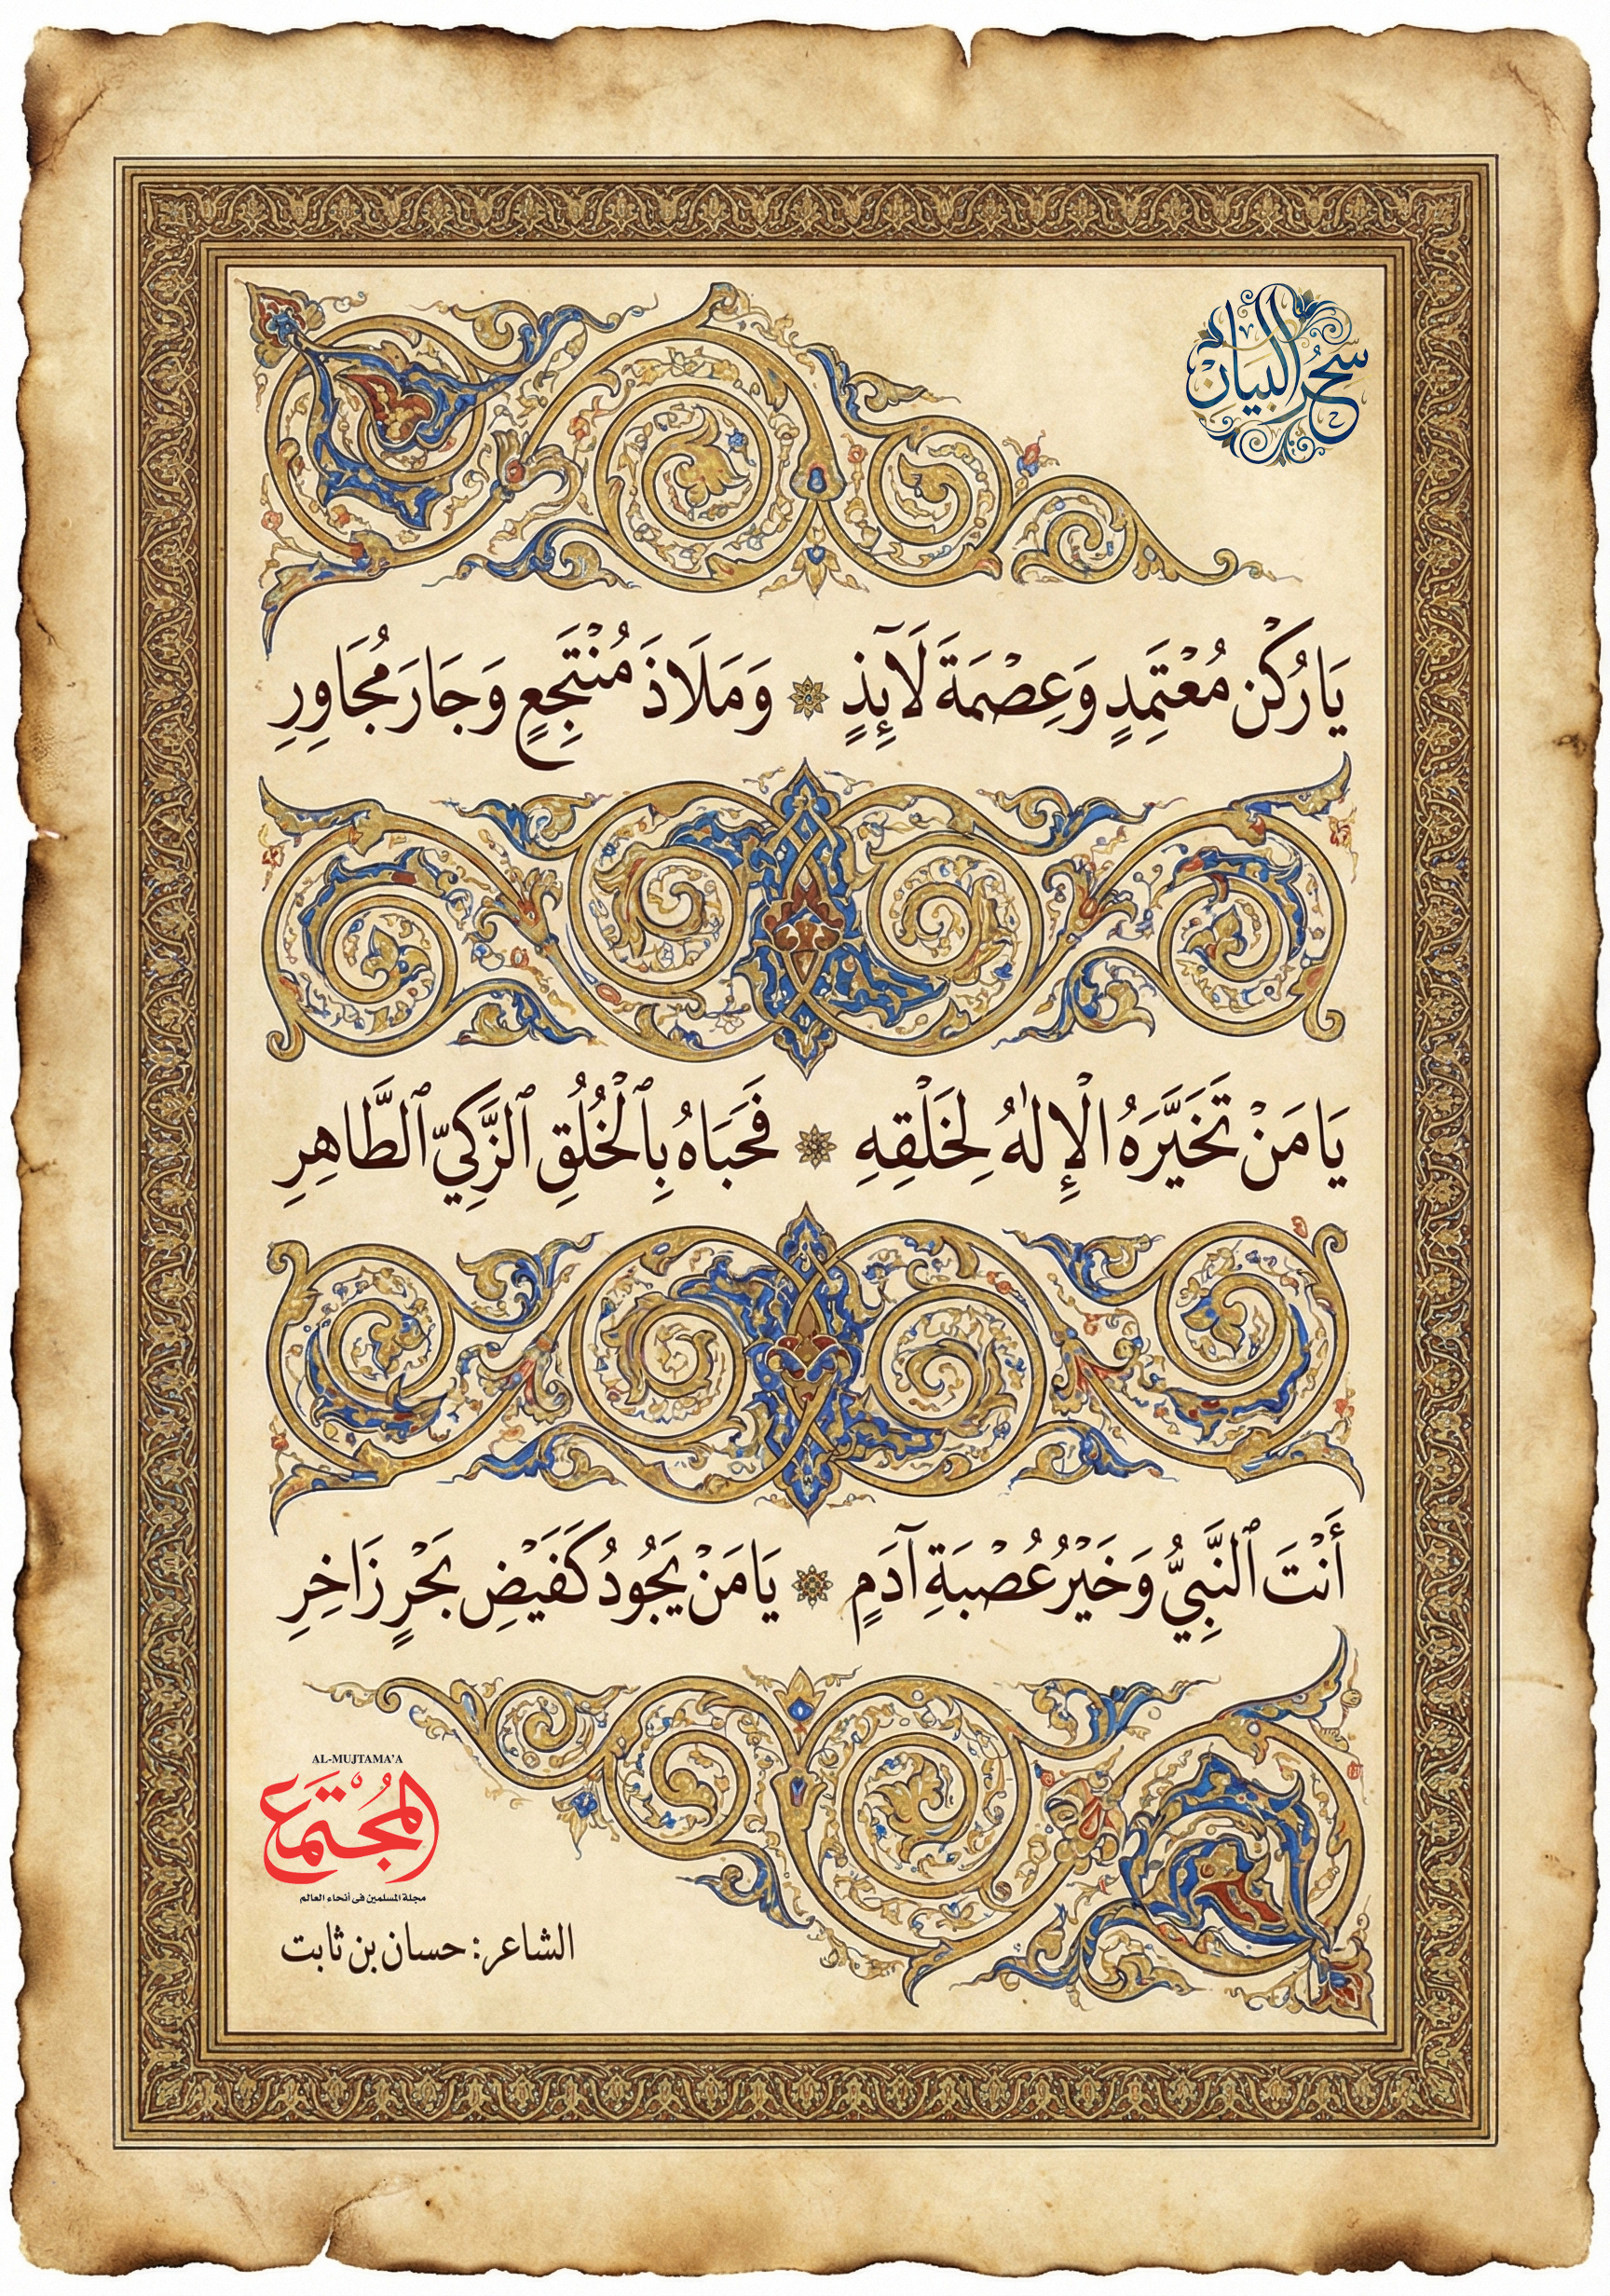 سحر البيان
يَا رُكْنَ مُعْتَمِدٍ وَعِصْمَةَ لَآئِذٍ ۞ وَمَلَاذَ مُنْتَجِعٍ وَجَارَ مُجَاوِرِ
يَا مَنْ تَخَيَّرَهُ الْإِلٰهُ لِخَلْقِهِ ۞ فَحَبَاهُ بِٱلْخُلُقِ ٱلزَّكِيِّ ٱلطَّاهِرِ
أَنْتَ ٱلنَّبِيُّ وَخَيْرُ عُصْبَةِ آدَمٍ ۞ يَا مَنْ يَجُودُ كَفَيْضِ بَحْرٍ زَاخِرِ
AL-MUJTAMA'A
المجتمع
مجلة المسلمين في أنحاء العالم
الشاعر: حسان بن ثابت